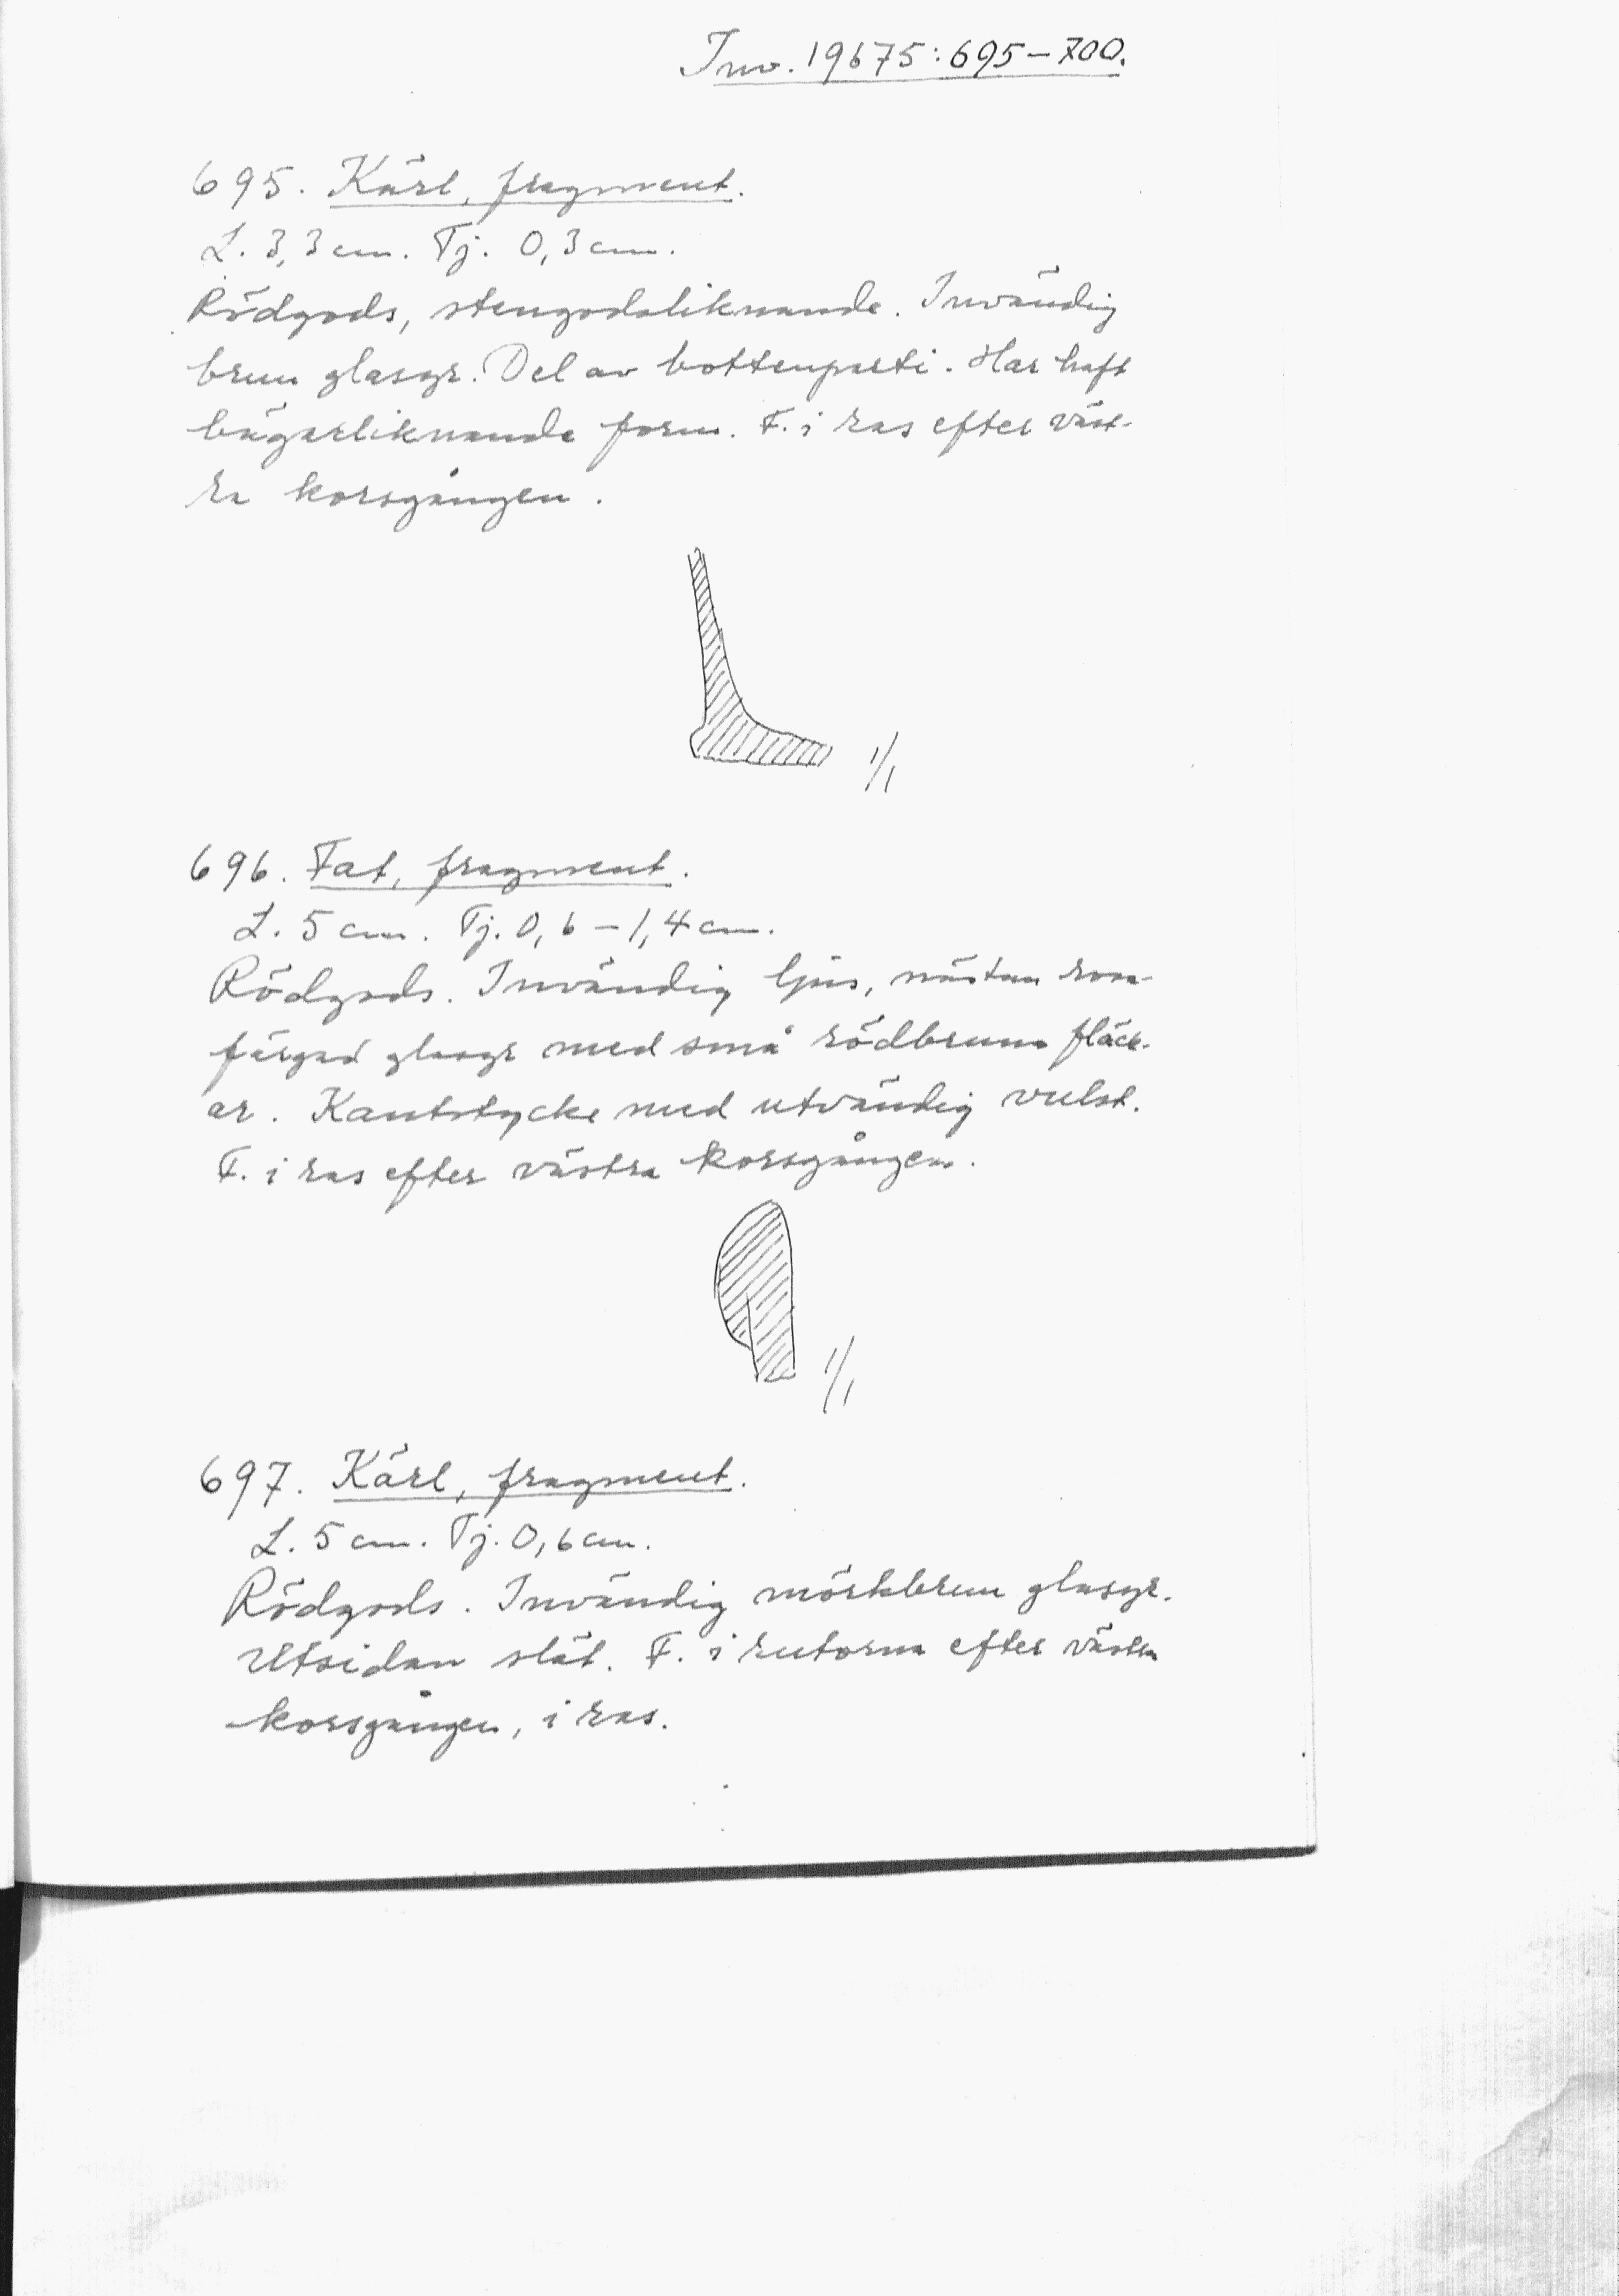 Inv. 19675:695–700.
695. Kärl, fragment.
L. 3,3 cm. Tj. 0,3 cm.
Rödgods, stengodsliknande. Invändig
brun glasyr. Del av bottenparti. Har haft
bägarliknande form. F. i ras efter väst-
ra korsgången.
1/1
696. Fat, fragment.
L. 5 cm. Tj. 0,6–1,4 cm.
Rödgods. Invändig ljus, nästan rosa-
färgad glasyr med små rödbruna fläck-
ar. Kantstycke med utvändig vulst.
F. i ras efter västra korsgången.
1/1
697. Kärl, fragment.
L. 5 cm. Tj. 0,6 cm.
Rödgods. Invändig mörkbrun glasyr.
Utsidan slät. F. i rutorna efter västra
korsgången, i ras.